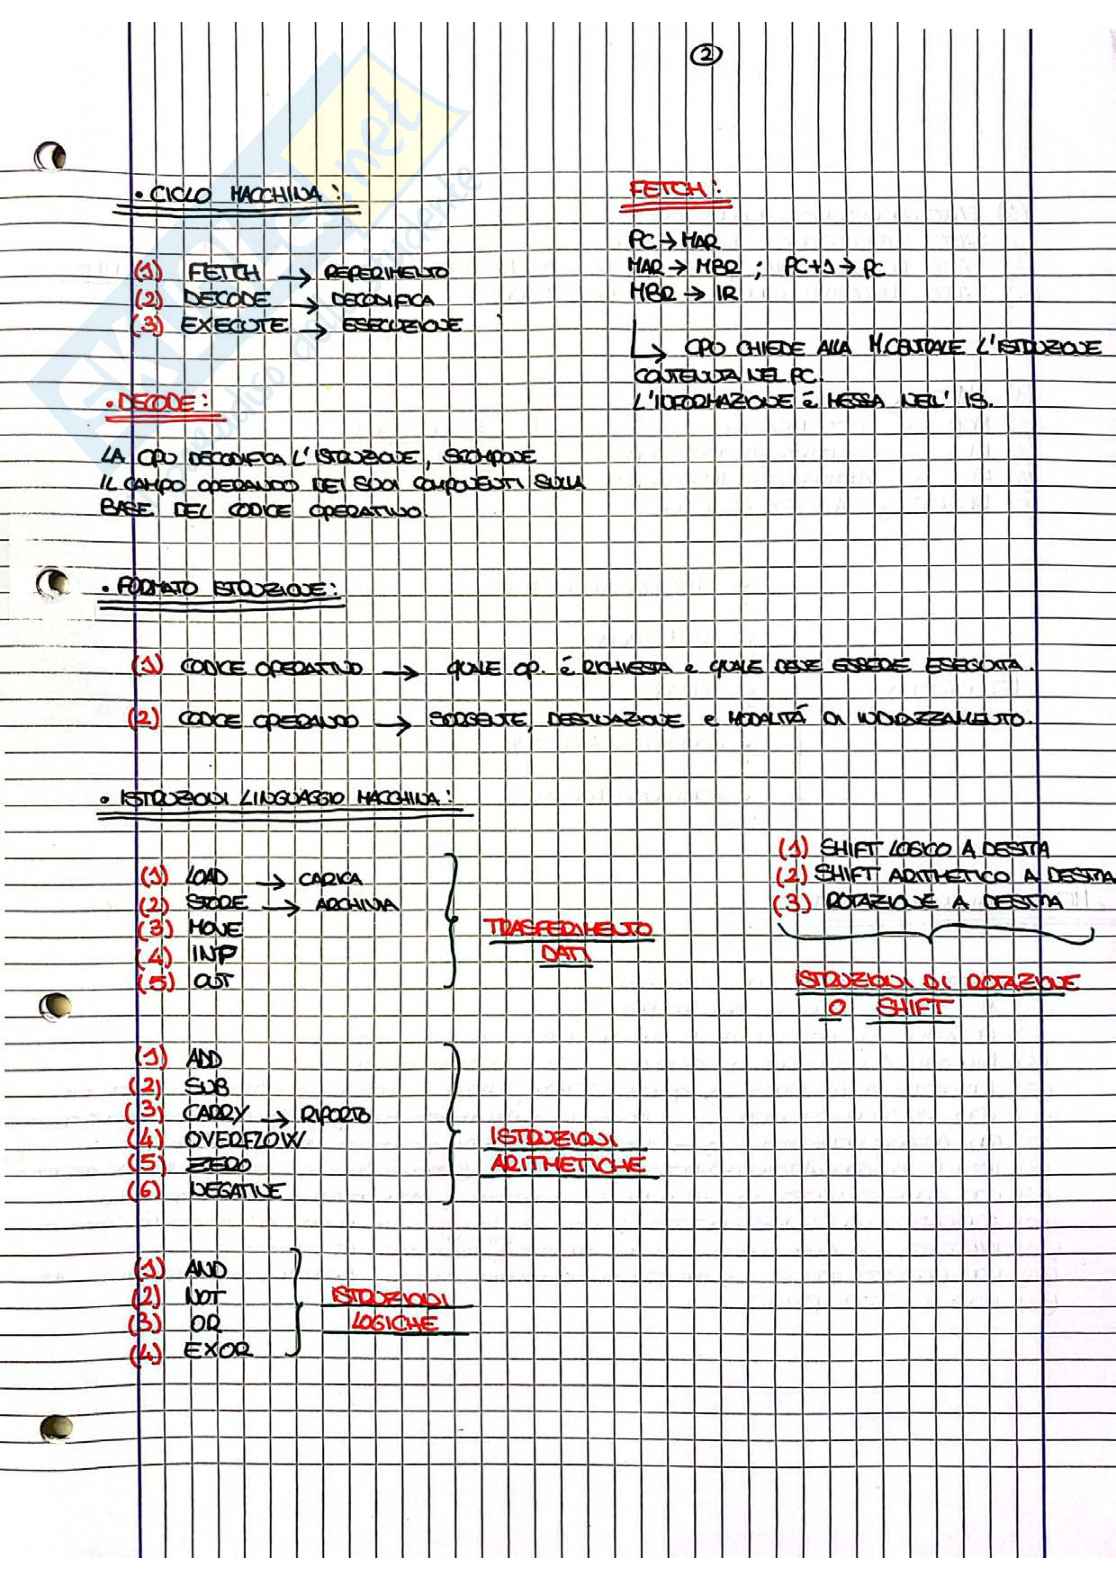 2
• CICLO MACCHINA:
(1) FETCH → REPERIMENTO
(2) DECODE → DECODIFICA
(3) EXECUTE → ESECUZIONE
FETCH:
PC → MAR
MAR → MBR ; PC+1 → PC
MBR → IR
↳ CPU CHIEDE ALLA M.CENTRALE L'ISTRUZIONE
CONTENUTA NEL PC.
L'INFORMAZIONE È MESSA NELL' IS.
• DECODE:
LA CPU DECODIFICA L'ISTRUZIONE, SCOMPONE
IL CAMPO OPERANDO DEI SUOI COMPONENTI SULLA
BASE DEL CODICE OPERATIVO.
• FORMATO ISTRUZIONE:
(1) CODICE OPERATIVO → QUALE OP. É RICHIESTA e QUALE DEVE ESSERE ESEGUITA.
(2) CODICE OPERANDO → SORGENTE, DESTINAZIONE e MODALITÁ DI INDIRIZZAMENTO.
• ISTRUZIONI LINGUAGGIO MACCHINA:
(1) LOAD → CARICA
(2) STORE → ARCHIVIA
(3) MOVE
(4) INP
(5) OUT
TRASFERIMENTO
DATI
(1) SHIFT LOGICO A DESTRA
(2) SHIFT ARITMETICO A DESTRA
(3) ROTAZIONE A DESTRA
ISTRUZIONI DI ROTAZIONE
O SHIFT
(1) ADD
(2) SUB
(3) CARRY → RIPORTO
(4) OVERFLOW
(5) ZERO
(6) NEGATIVE
ISTRUZIONI
ARITMETICHE
(1) AND
(2) NOT
(3) OR
(4) EXOR
ISTRUZIONI
LOGICHE